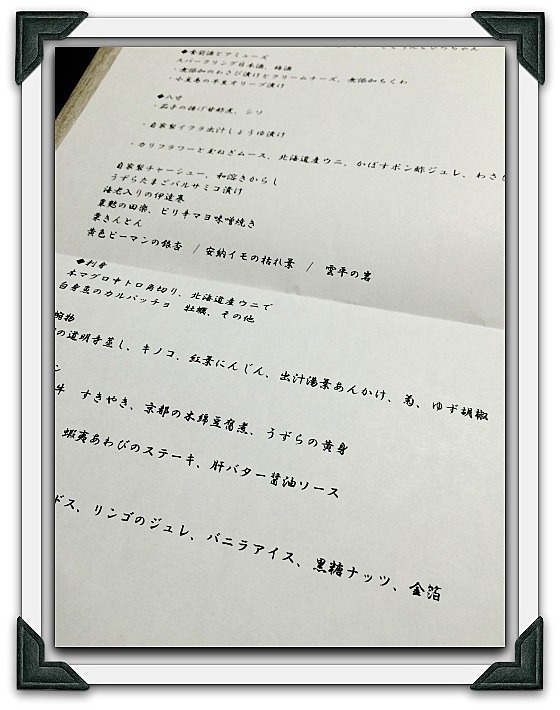 ◆食前酒とアミューズ
スパークリング日本酒、梅酒
・無添加のわさび漬けとクリームチーズ、無添加ちくわ
・小豆島の半生オリーブ漬け
◆八寸
・茄子の揚げ甘酢煮、シソ
・自家製イクラ出汁しょうゆ漬け
・カリフラワーと玉ねぎムース、北海道産ウニ、かぼすポン酢ジュレ、わさ
自家製チャーシュー、和溶きからし
うずらたまごバルサミコ漬け
海老入りの伊達巻
粟麩の田楽、ピリ辛マヨ味噌焼き
栗きんとん
黄色ピーマンの銀杏 / 安納イモの枯れ葉 / 雲平の岩
◆刺身
本マグロ中トロ角切り、北海道産ウニで
白身魚のカルパッチョ 牡蠣、その他
の道明寺蒸し、キノコ、紅葉にんじん、出汁湯葉あんかけ、菊、ゆず胡椒
牛 すきやき、京都の木綿豆腐煮、うずらの黄身
蝦夷あわびのステーキ、肝バター醤油ソース
ドス、リンゴのジュレ、バニラアイス、黒糖ナッツ、金箔